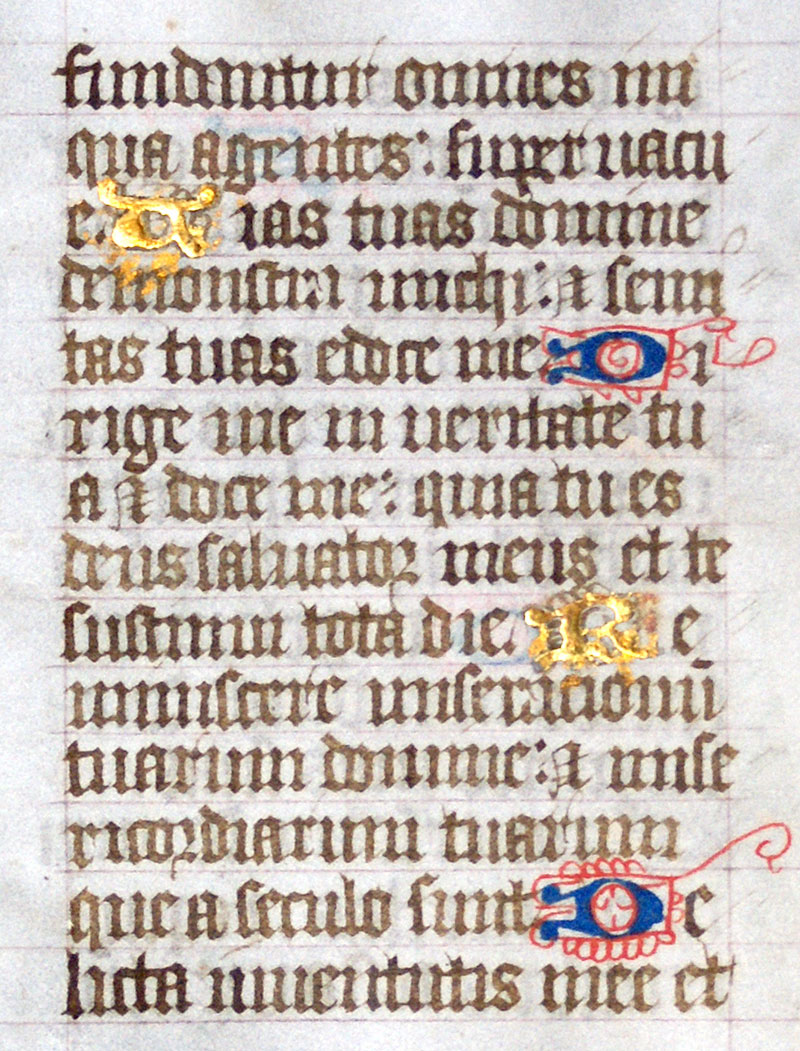 fundantur omnes ini
qua agentes: super vacu
e Vias tuas domine
demonstra michi: ⁊ semi
tas tuas edoce me Di
rige me in veritate tu
a ⁊ doce me: quia tu es
deus salvator meus et te
sustinui tota die. Re
miniscere miseracionū
tuarum domine: ⁊ mise
ricordiarum tuarum
que a seculo sunt De
licta iuventutis mee et